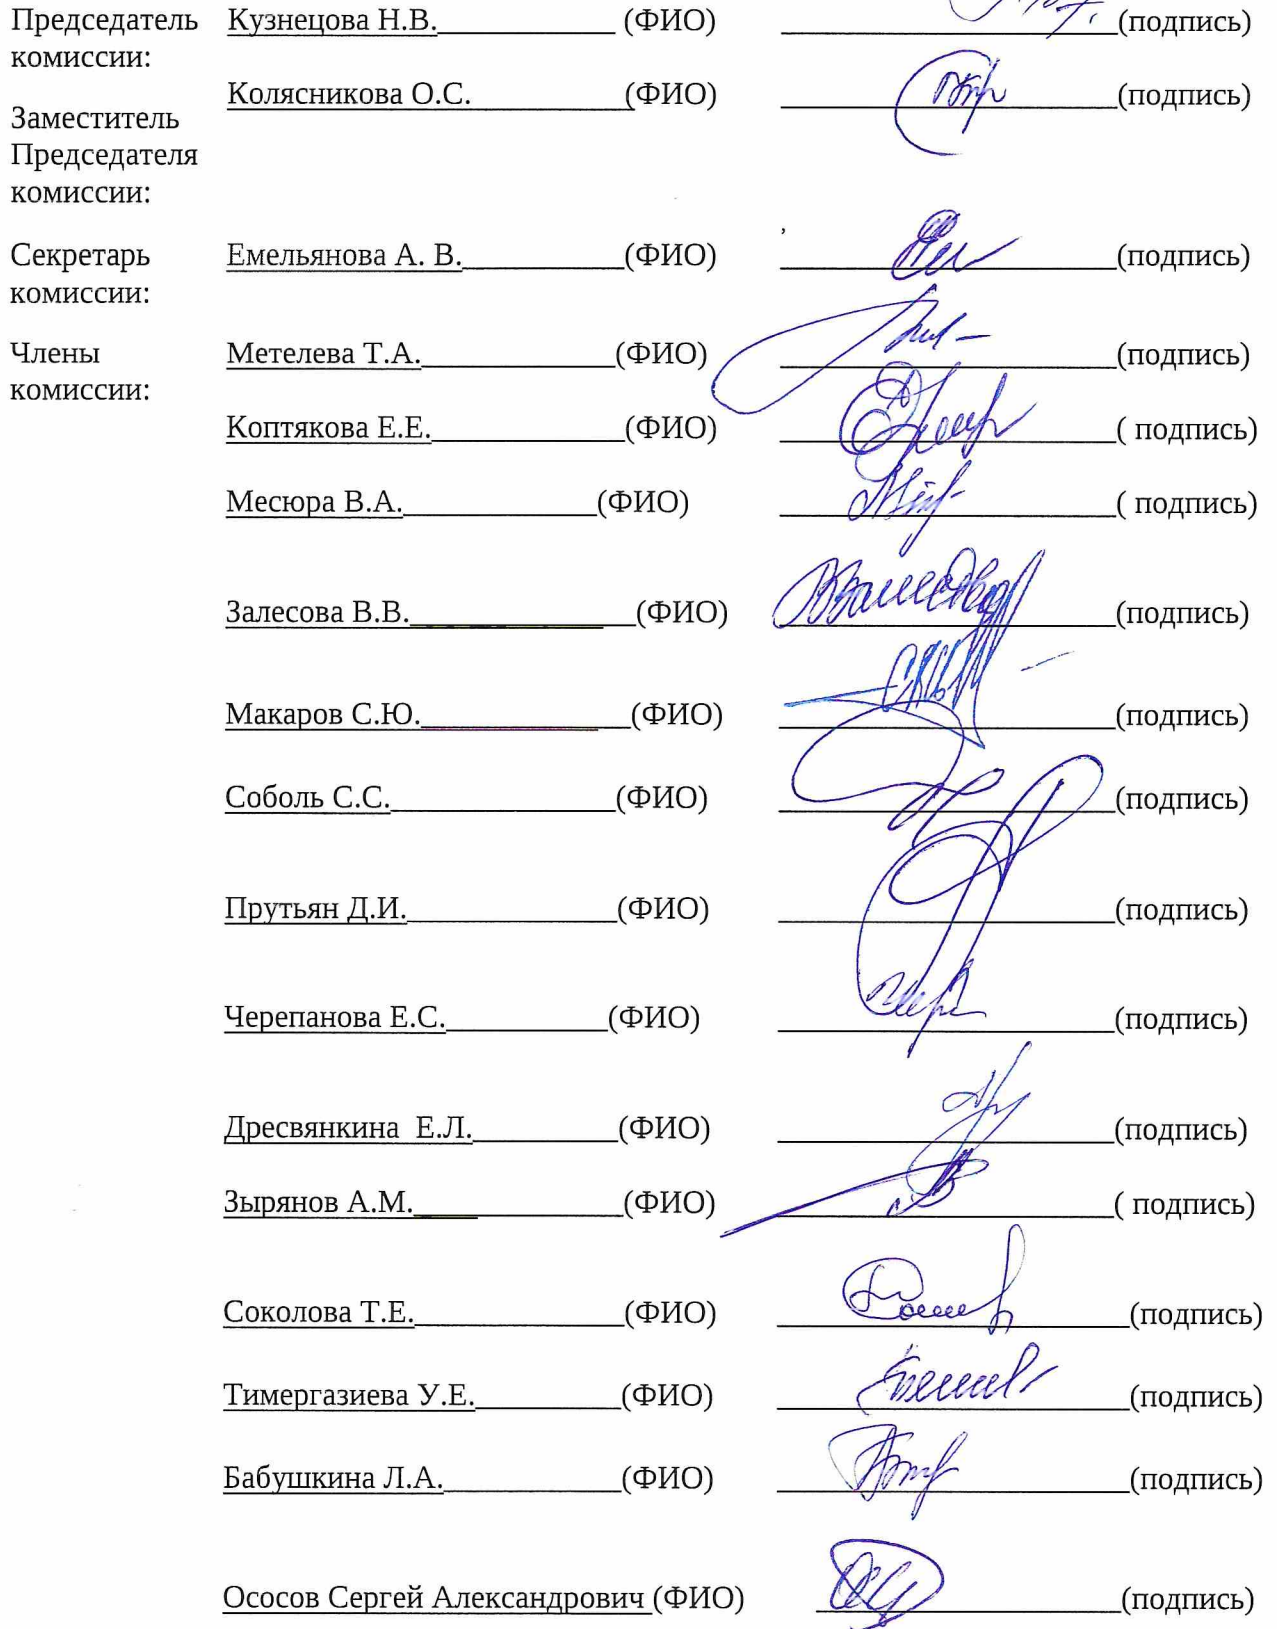 Председатель Кузнецова Н.В. (ФИО) (подпись)
комиссии:
Колясникова О.С. (ФИО) (подпись)
Заместитель
Председателя
комиссии:
Секретарь Емельянова А. В. (ФИО) (подпись)
комиссии:
Члены Метелева Т.А. (ФИО) (подпись)
комиссии:
Коптякова Е.Е. (ФИО) ( подпись)
Месюра В.А. (ФИО) ( подпись)
Залесова В.В. (ФИО) (подпись)
Макаров С.Ю. (ФИО) (подпись)
Соболь С.С. (ФИО) (подпись)
Прутьян Д.И. (ФИО) (подпись)
Черепанова Е.С. (ФИО) (подпись)
Дресвянкина Е.Л. (ФИО) (подпись)
Зырянов А.М. (ФИО) ( подпись)
Соколова Т.Е. (ФИО) (подпись)
Тимергазиева У.Е. (ФИО) (подпись)
Бабушкина Л.А. (ФИО) (подпись)
Ососов Сергей Александрович (ФИО) (подпись)